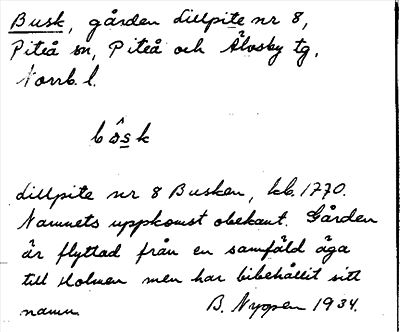 Busk, gården Lillpite nr 8,
Piteå sn, Piteå och Älvsby tg,
Norrb. l.
Lillpite nr 8 Busken, kb. 1770.
Namnets uppkomst obekant. Gården
är flyttad från en samfäld äga
till Holmen men har bibehållit sitt
namn. B. Nyppen 1934.